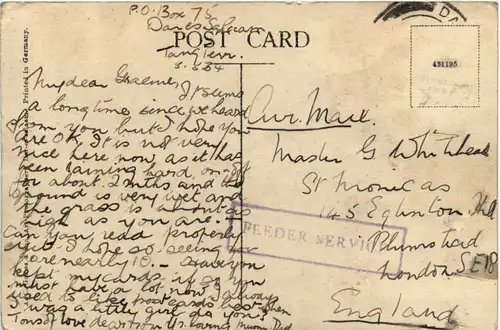 P.O. Box 75
Dar es Salaam
Tang Terr.
3.5.34
POST CARD
Printed in Germany.
431795
My dear Graeme, It seems
a long time since we heard
from you but I hope you
are OK. It is not very
nice here now, as it has
been raining hard, on & off
for about 2 mths and the
ground is very wet and
the grass is about as
high as you are!
Can you read properly
yet? I hope so, seeing you
are nearly 10 - Have you
kept my cards, if so you
must have a lot now. I always
used to like post cards when
I was a little girl do you?
Tons of love dear from Yr. loving Mum & Dad
Air Mail.
Master G Whitehead
St Monicas
145 Eglinton Hill
Plumstead
London SE18
England
FEEDER SERVICE